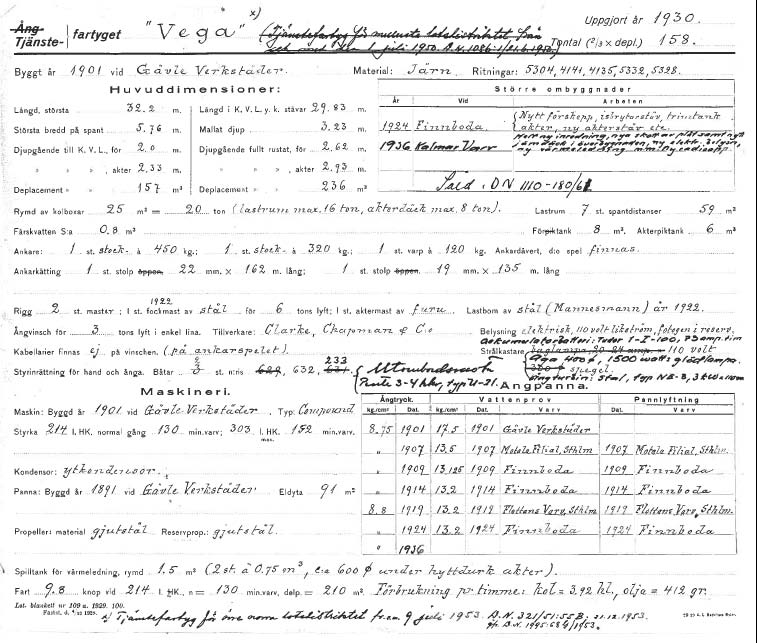 Ång-
Tjänste- fartyget "Vega" x) (Tjänstefartyg för mellersta lotsdistriktet från Uppgjort år 1930.
och med den 1 juli 1950. B.N. 1086:1/21.6.1950.) Tontal (2/3 x depl.) 158.
Byggt år 1901 vid Gävle Verkstäder. Material: Järn. Ritningar: 5304, 4141, 4135, 5332, 5328.
Huvuddimensioner:
Längd, största 32.2 m. Längd i K.V.L. y. k. stävar 29.83 m.
Största bredd på spant 5.76 m. Mallat djup 3.23 m.
Djupgående till K.V.L., för 2.0 m. Djupgående fullt rustat, för 2.62 m.
» » » , akter 2.33 m. » » » , akter 2.93 m.
Deplacement » » 157 m³ Deplacement » » 236 m³
Större ombyggnader
År Vid Arbeten
1924 Finnboda. Nytt förskepp, isbrytarstäv, trimtank akter, ny akterstäv etc.
1936 Kalmar Varv Helt ny inredning, nya skott av plåt samt nytt
järndäck i överbyggnaden, ny elektr. belysn,
ny värmeledning m.m. Ny radioapp.
Såld. DN 1110-180/61
Rymd av kolboxar 25 m³ = 20 ton (lastrum max. 16 ton, akterdäck max. 8 ton). Lastrum 7 st. spantdistanser 59 m³
Färskvatten S:a 0.8 m³ Förpiktank 8 m³. Akterpiktank 6 m³
Ankare: 1 st. stock- à 450 kg.; 1 st. stock- à 320 kg.; 1 st. varp à 120 kg. Ankardävert, d:o spel finnas.
Ankarkätting 1 st. stolp öppen 22 mm. x 162 m. lång; 1 st. stolp öppen 19 mm. x 135 m. lång
Rigg 2 st. master; 1 st. fockmast av stål 1922 för 6 tons lyft; 1 st. aktermast av furu. Lastbom av stål (Mannesmann) år 1922.
Ångvinsch för 3 tons lyft i enkel lina. Tillverkare: Clarke, Chapman & C:o Belysning elektrisk, 110 volt likström, fotogen i reserv.
Ackumulatorbatteri: Tudor 1-I-100, 73 amp.tim
Kabellarier finnas ej på vinschen. (på ankarspelet). Strålkastare 110 volt
Aga 400 ø, 1500 watts glödlampa.
spegel.
Styrinrättning för hand och ånga. Båtar 3 2 st. n:ris 629, 632, 631 233 Utombordsmotor
Penta 3-4 hkr, typ U-21. Ångturbin: Stal, typ NE-3, 3 kW 110 V
Maskineri.
Maskin: Byggd år 1901 vid Gävle Verkstäder. Typ: Compound
Styrka 214 I.HK. normal gång 130 min.varv; 303 I.HK. max. 152 min.varv.
Kondensor: ytkondensor.
Panna: Byggd år 1891 vid Gävle Verkstäder Eldyta 91 m²
Propeller: material gjutstål Reservprop.: gjutstål.
Ångpanna.
Ångtryck. Vattenprov Pannlyftning
kg./cm² Dat. kg./cm² Dat. Varv Dat. Varv
8.75 1901 17.5 1901 Gävle Verkstäder
" 1907 13.5 1907 Motala Filial, Sthlm 1907 Motala Filial, Sthlm.
" 1909 13.125 1909 Finnboda 1909 Finnboda
" 1914 13.2 1914 Finnboda 1914 Finnboda
8.8 1919 13.2 1919 Flottans Varv, Sthlm 1919 Flottans Varv, Sthlm.
" 1924 13.2 1924 Finnboda 1924 Finnboda
" 1936
Spilltank för värmeledning, rymd 1.5 m³ (2 st. à 0.75 m³, c:a 600 ø under hyttdurk akter).
Fart 9.8 knop vid 214 I.HK., n = 130 min.varv, delp. = 210 m³. Förbrukning pr timme: kol = 3.92 hl., olja = 412 gr.
Lot. blankett nr 109 a. 1929. 100.
x) Tjänstefartyg för övre norra lotsdistriktet fr.o.m. 9 juli 1953. B.N. 321/51:55B, 21.12.1953.